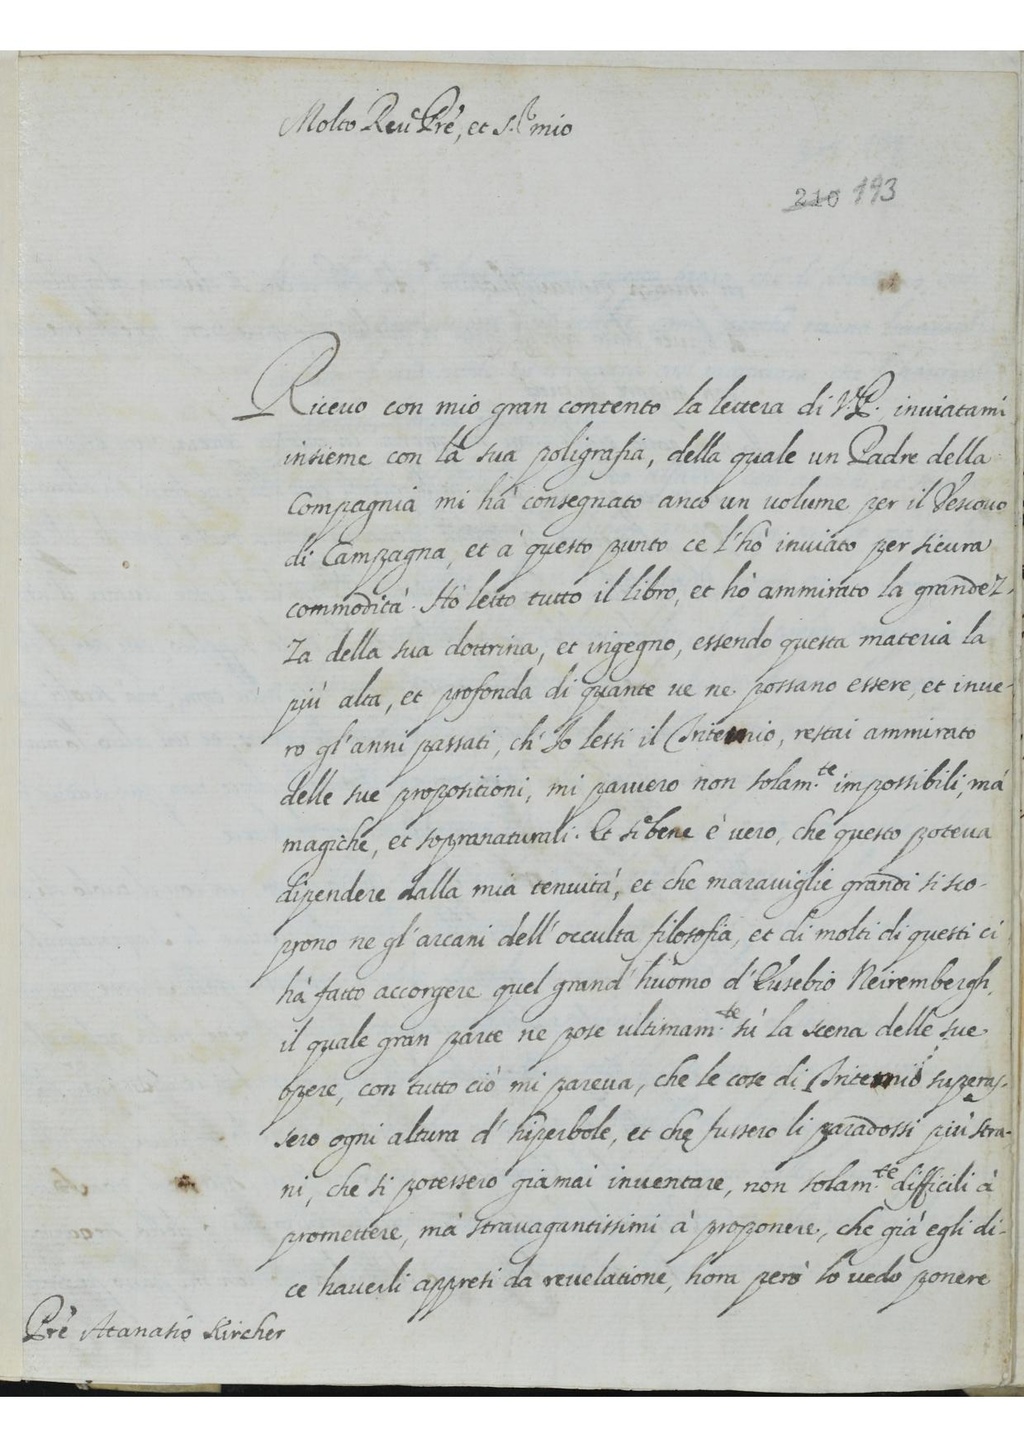 Molto Reu.e Pr̃e, et s.r mio
210 193
Riceuo con mio gran contento la lettera di V.P. inuiatami
insieme con la sua poligrafia, della quale un Padre della
Compagnia mi hà consegnato anco un uolume per il Vescouo
di Campagna, et à questo punto ce l'hò inuiato per sicura
commodità. Hò letto tutto il libro, et hò ammirato la grandez-
za della sua dottrina, et ingegno, essendo questa materia la
più alta, et profonda di quante ue ne possano essere, et inue-
ro gl'anni passati, ch'Io lessi il Tritemio, restai ammirato
delle sue propositioni, mi paruero non solam.te impossibili, mà
magiche, et sopranaturali. Et se bene è uero, che questo poteua
dipendere dalla mia tenuità, et che marauiglie grandi si sco-
prono ne gl'arcani dell'occulta filosofia, et di molti di questi ci
hà fatto accorgere quel grand'huomo d'Eusebio Neirembergh,
il quale gran parte ne pose ultimam.te sù la scena delle sue
opere, con tutto ciò mi pareua, che le cose di Tritemio superas-
sero ogni altura d'hiperbole, et che fussero li paradossi più stra-
ni, che si potessero giamai inuentare, non solam.te difficili à
promettere, mà strauagantissimi à proponere, che già egli di-
ce hauerli appresi da reuelatione, hora però lo uedo ponere
Pr̃e Atanasio Kircher